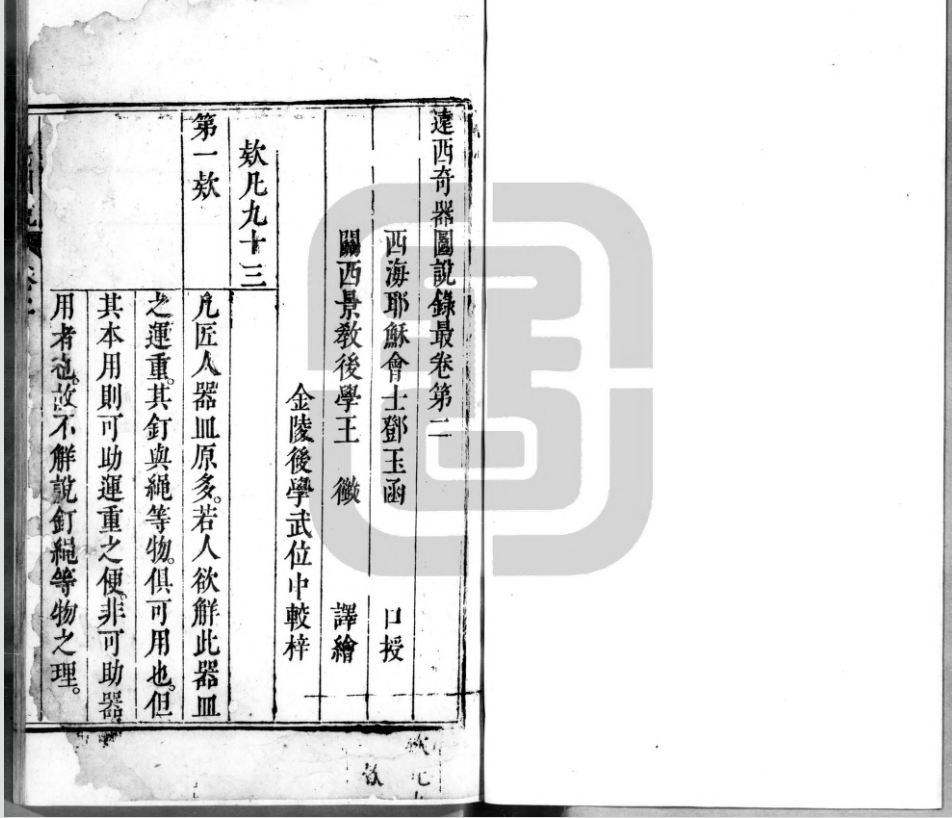 遠西奇器圖說錄最卷第二
西海耶穌會士鄧玉函 口授
關西景教後學王 徵 譯繪
金陵後學武位中較梓
欵凡九十三
第一欵
凡匠人器皿原多。若人欲解此器皿
之運重。其釘與繩等物。俱可用也。但
其本用則可助運重之便。非可助器
用者也。故不解說釘繩等物之理。